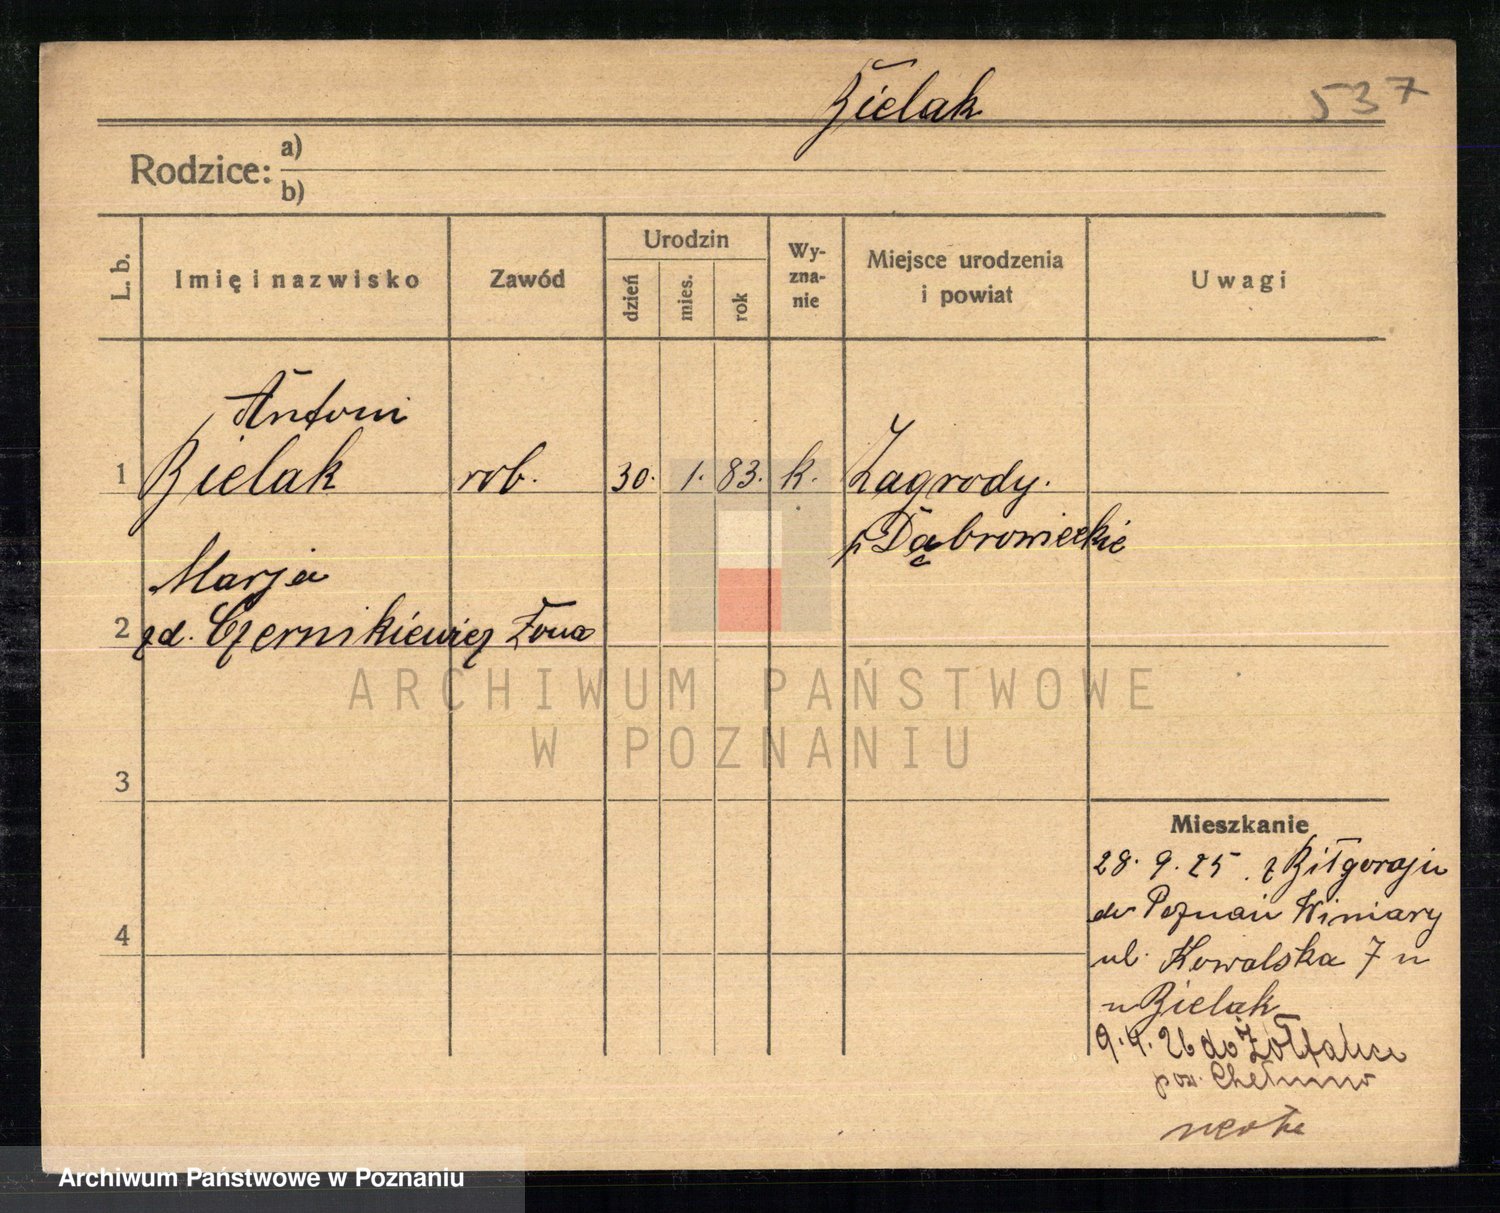 Bielak
537
Rodzice: a)
b)
L. b.
Imię i nazwisko
Zawód
Urodzin
dzień
mies.
rok
Wy-
zna-
nie
Miejsce urodzenia
i powiat
Uwagi
Antoni
1 Bielak rob. 30. 1. 83. k. Zagrody.
p Dąbrowieckie
Marja
2 zd. Czernikiewicz Żona
ARCHIWUM PAŃSTWOWE
W POZNANIU
3
Mieszkanie
28. 9. 25. z Biłgoraju
do Poznań Winiary
4
ul. Kowalska 7 u
u Bielak
9. 4. 26 do
pow. Chełmno
Archiwum Państwowe w Poznaniu